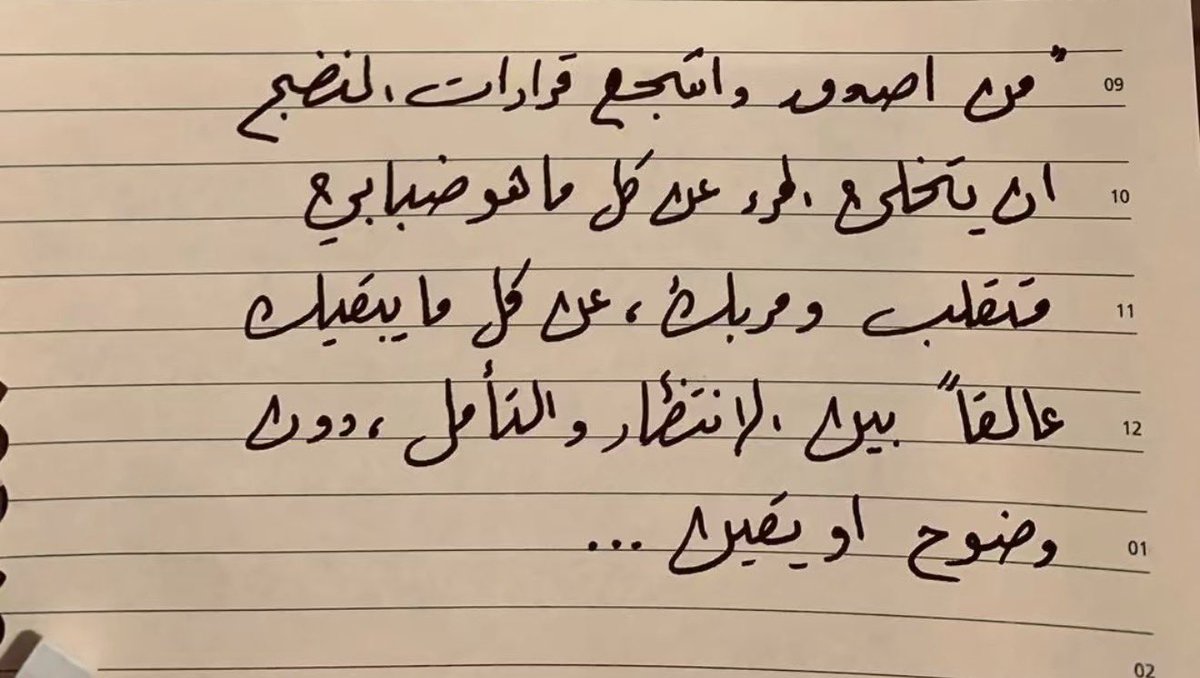 "من اصدق واشجع قرارات النضج 09
ان يتخلى المرء عن كل ما هو ضبابي 10
متقلب ومربك ، عن كل ما يبقيك 11
عالقاً بين الانتظار والتأمل ، دون 12
وضوح او يقين ... 01
02